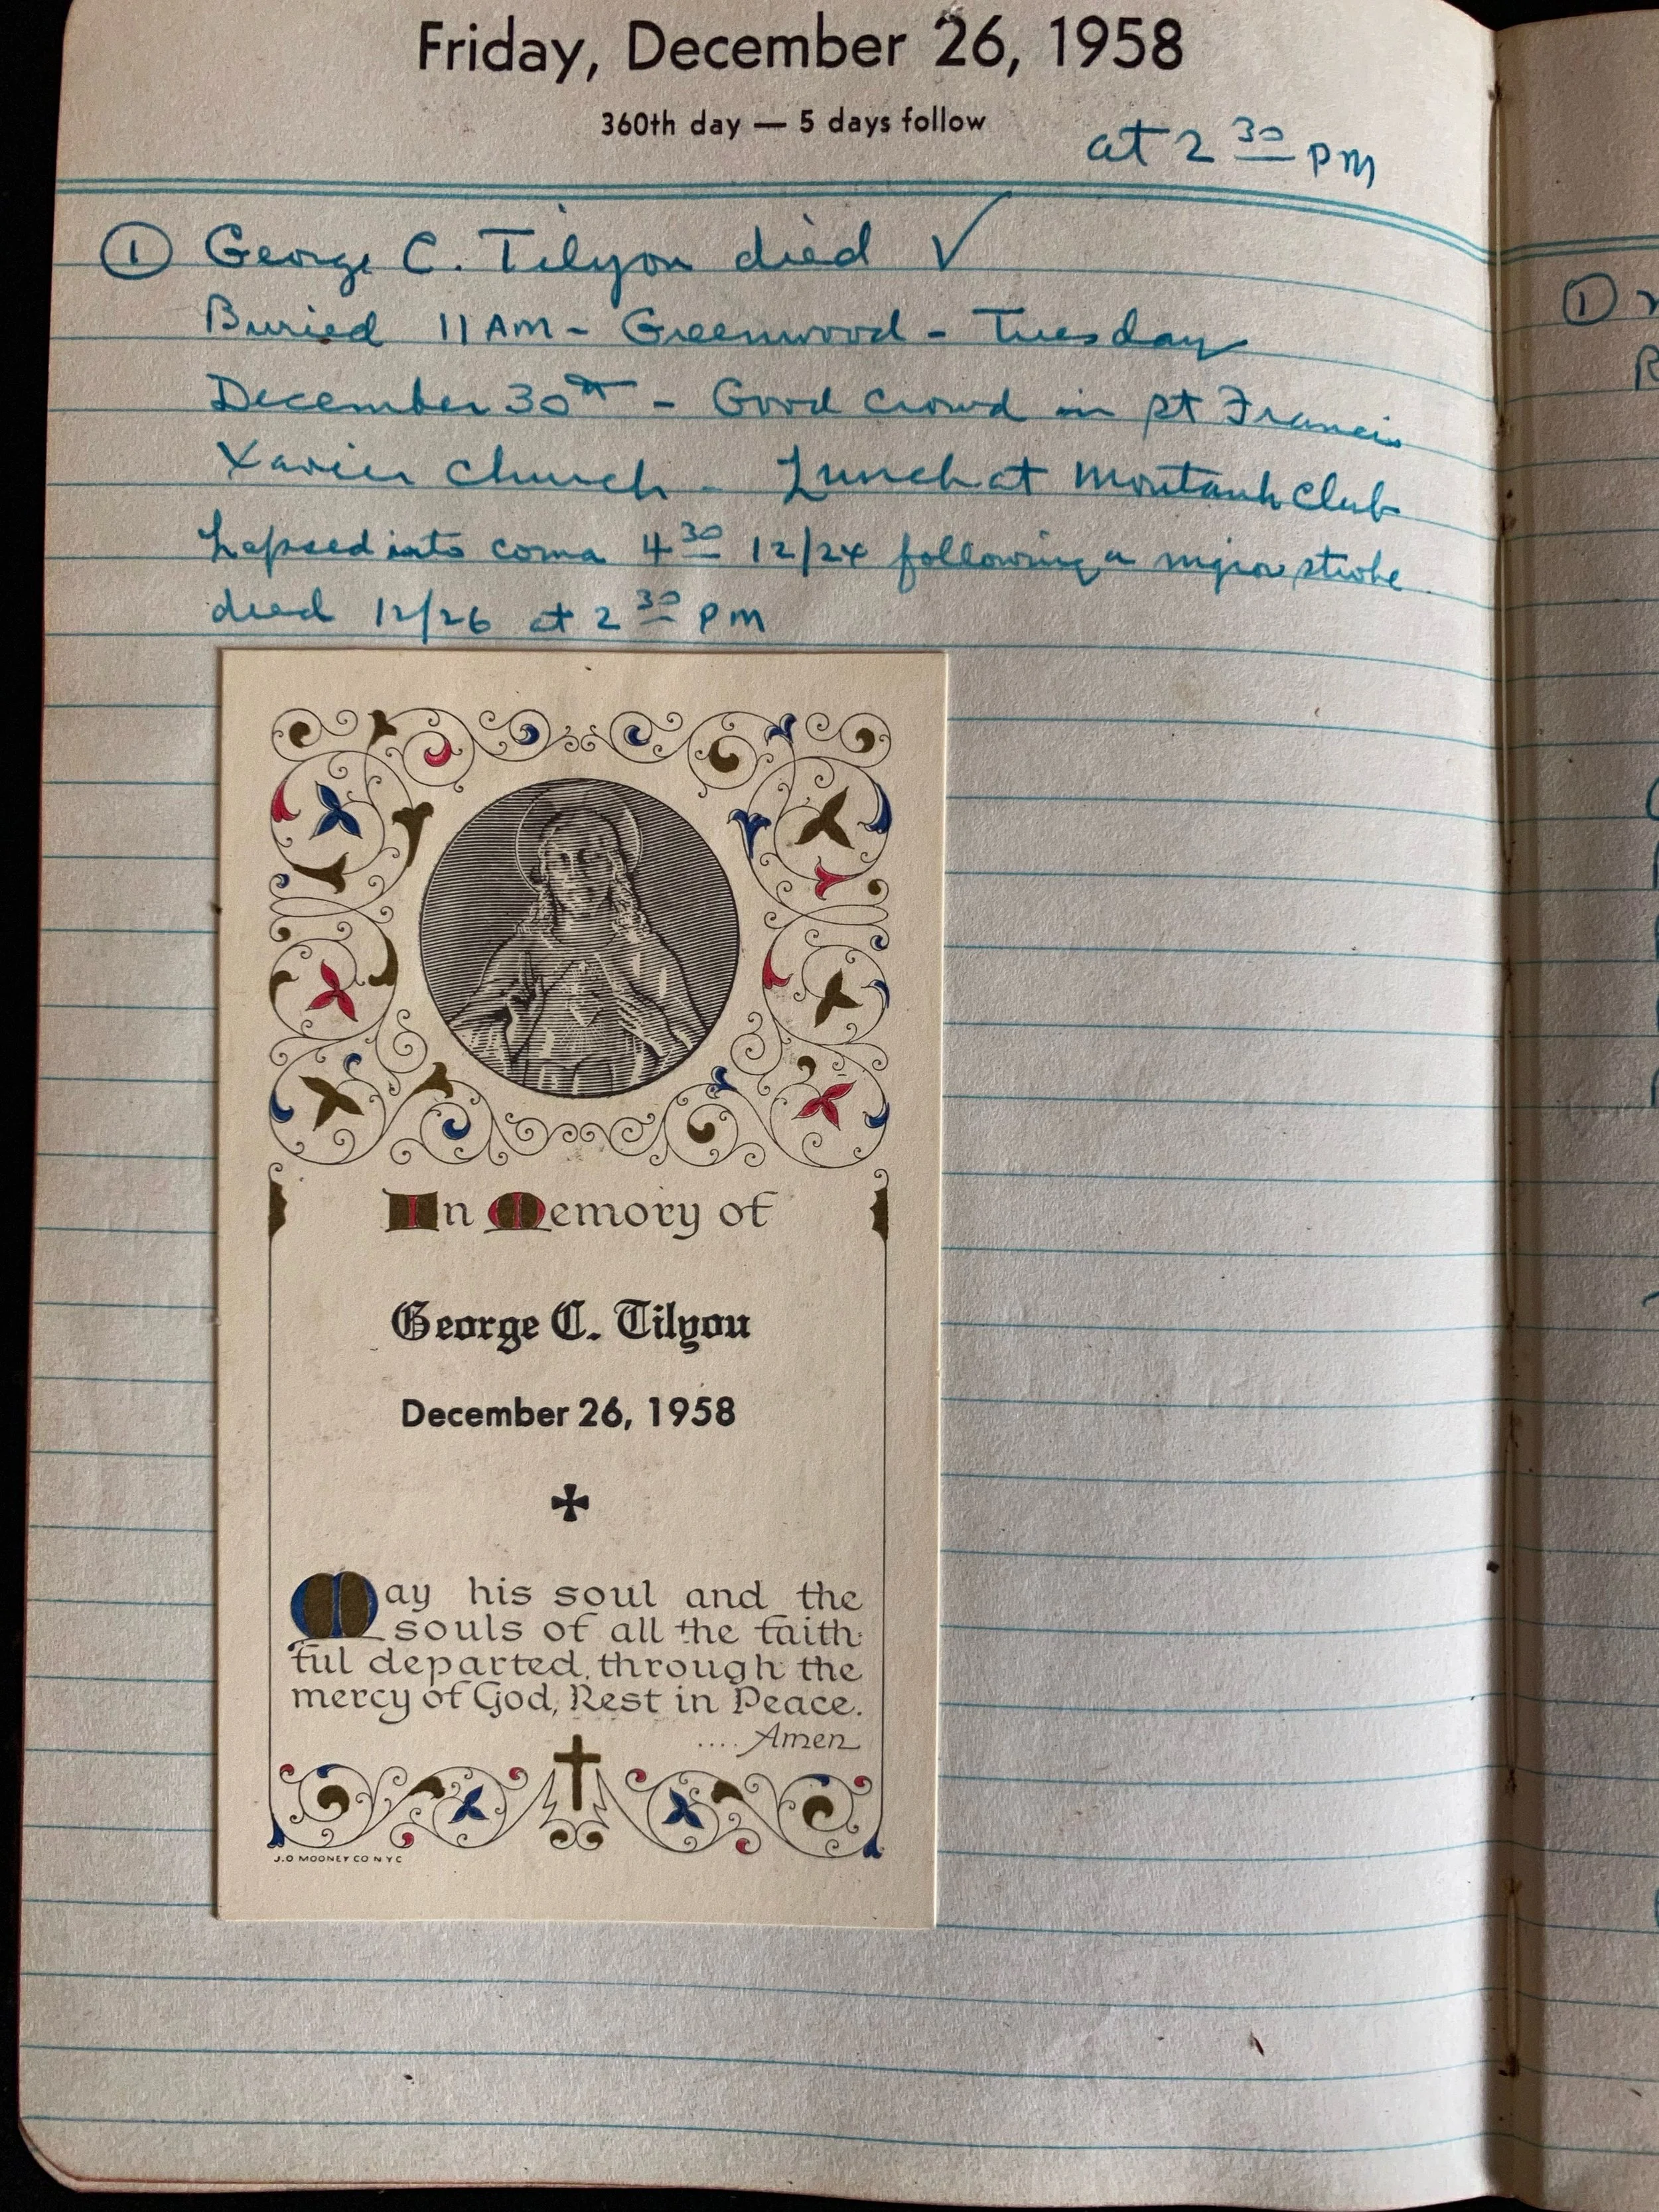 Friday, December 26, 1958
360th day — 5 days follow
at 2 30 PM
① George C. Tilyou died ✓
Buried 11 AM - Greenwood - Tuesday
December 30th - Good crowd in St Francis
Xavier Church - Lunch at Montauk Club
Lapsed into coma 4 30 12/24 following a major stroke
died 12/26 at 2 30 PM
In Memory of
George C. Tilyou
December 26, 1958
May his soul and the
souls of all the faith-
ful departed, through the
mercy of God, Rest in Peace.
.... Amen
J.O MOONEY CO N Y C
①